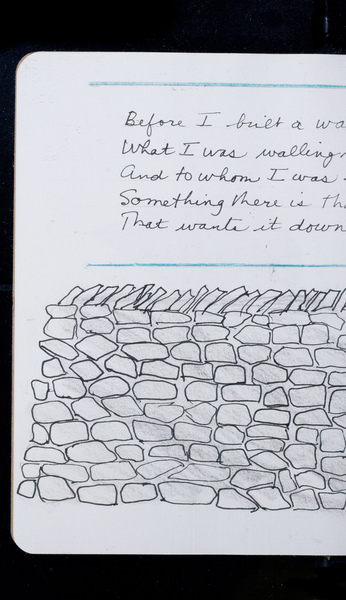 Before I built a wa
What I was walling
And to whom I was
Something there is th
That wants it down